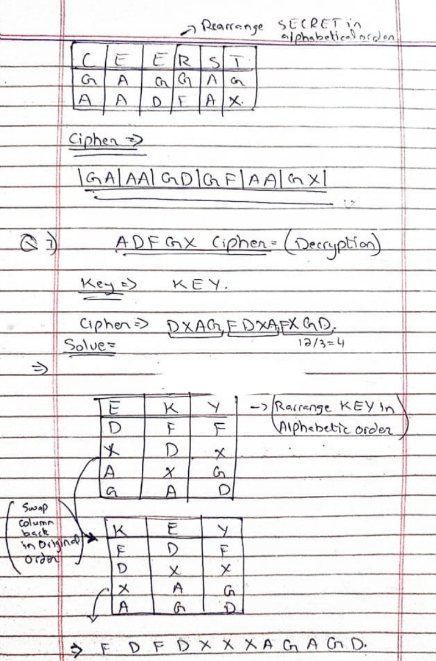 → Rearrange SECRET in
alphabetical order
C E E R S T
G A G G A G
A A D F A X
Cipher ⇒
|GA|AA|GD|GF|AA|GX|
Q ⇒) ADFGX Cipher = (Decryption)
Key ⇒ KEY.
Cipher ⇒ DXAG, FDXA, FXGD.
12/3=4
Solve =
⇒
E K Y → Rearrange KEY in
D F F Alphabetic order
X D X
A X G
G A D
Swap
column
back
in Original
order
K E Y
F D F
D X X
X A G
A G D
⇒ F D F D X X X A G A G D.